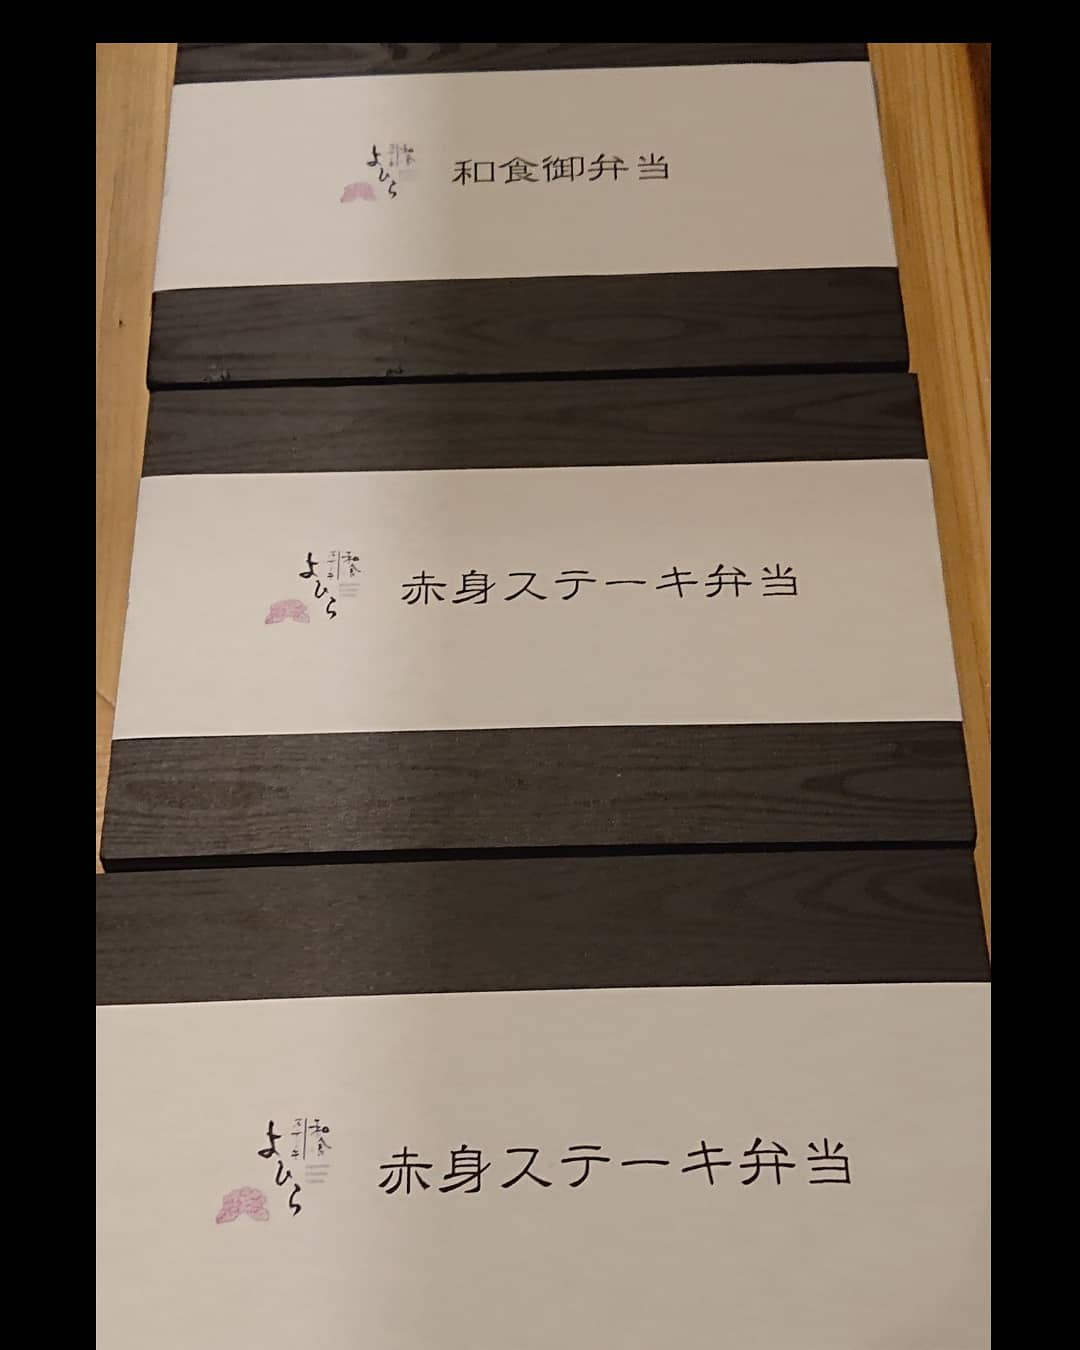 和食
ステーキ
よひら
和食御弁当
和食
ステーキ
よひら
赤身ステーキ弁当
和食
ステーキ
よひら
赤身ステーキ弁当